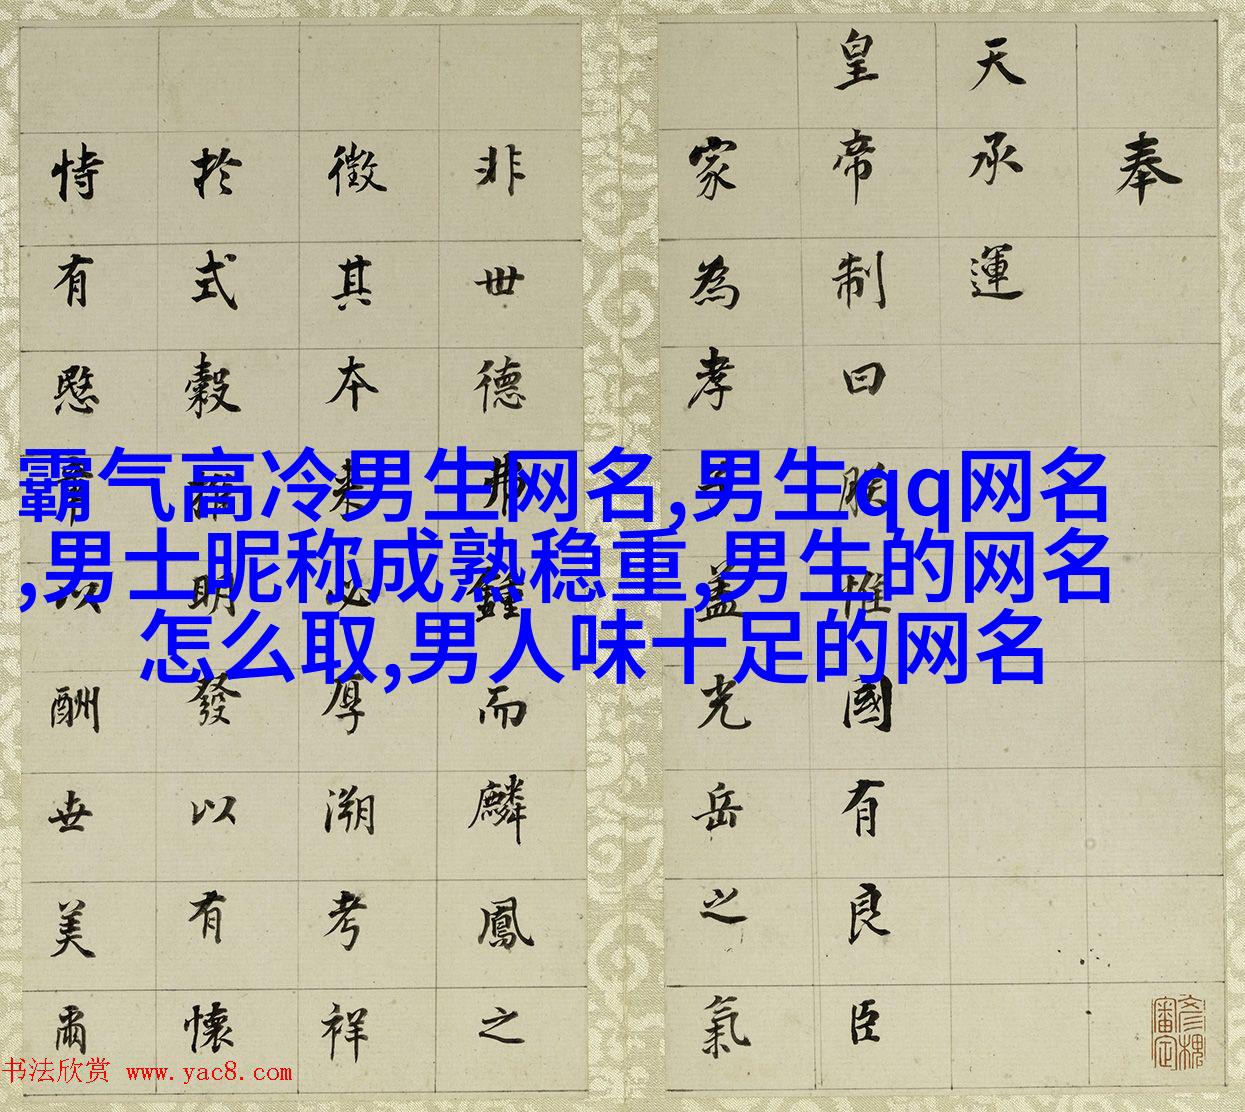 奉
天承運
皇帝制曰朕惟國有良臣
家為孝子蓋光岳之氣
非世德弗鍾而麟鳳之
徵其本來必厚溯考祥
於式穀推明發以有懷
恃有章以酬世美爾
霸气高冷男生网名,男生qq网名
,男士昵称成熟稳重,男生的网名
怎么取,男人味十足的网名
彥槐審定
书法欣赏 www.yac8.com